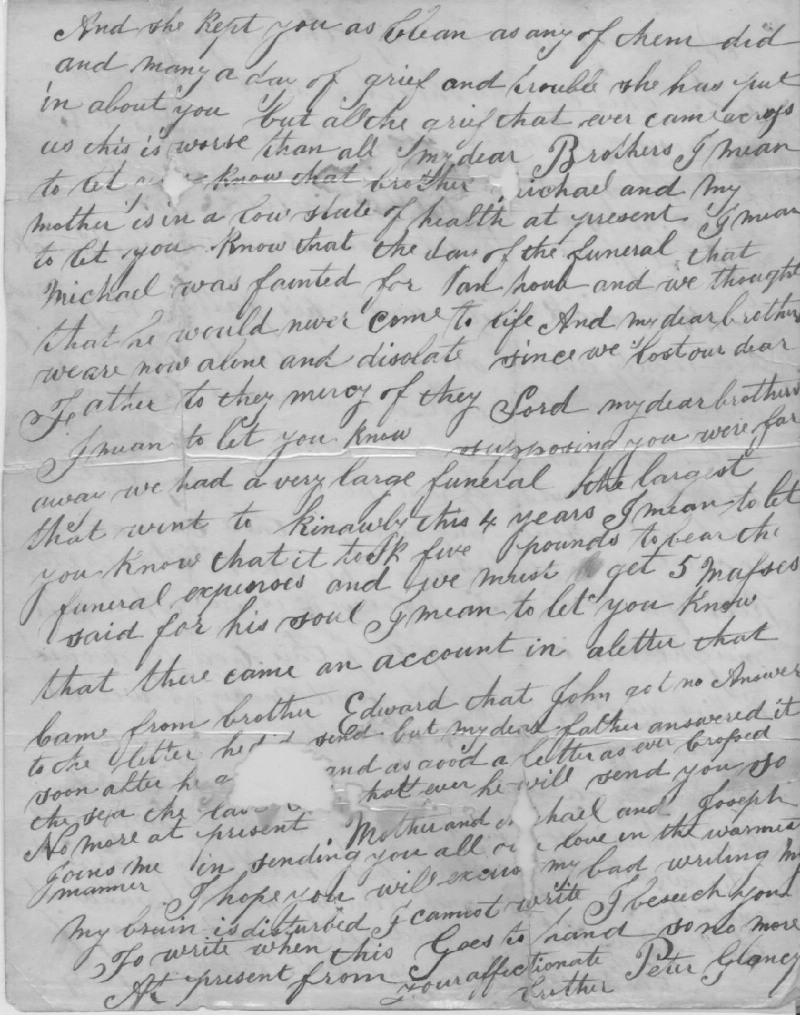 And she kept you as Clean as any of them did
and many a day of grief and trouble she has put
in about you but all the grief that ever came across
us this is worse than all my dear Brothers I mean
to let know that brother ichael and my
mother is in a low state of health at present I mean
to let you know that the day of the funeral that
Michael was fainted for 1 an hour and we thought
that he would never come to life And my dear brothers
we are now alone and disolate since we lost our dear
Father to they mercy of they Lord my dear brothers
I mean to let you know supposing you were far
away we had a very large funeral the largest
that went to Kinawly this 4 years I mean to let
you know that it took five pounds to bear the
funeral expenses and we must get 5 Masses
said for his soul I mean to let you know
that there came an account in a letter that
Came from brother Edward that John got no Answer
to the letter he send but my dear father answered it
soon after he and as good a letter as ever Crossed
the sea the that ever he will send you so
No more at present Mother and hael and Joseph
joins me in sending you all love in the warmest
manner I hope you will excus my bad writing
My brain is disturbed I cannot write I beseech you
To write when this Goes to hand so no more
At present from your affectionate
brother Peter Glancy